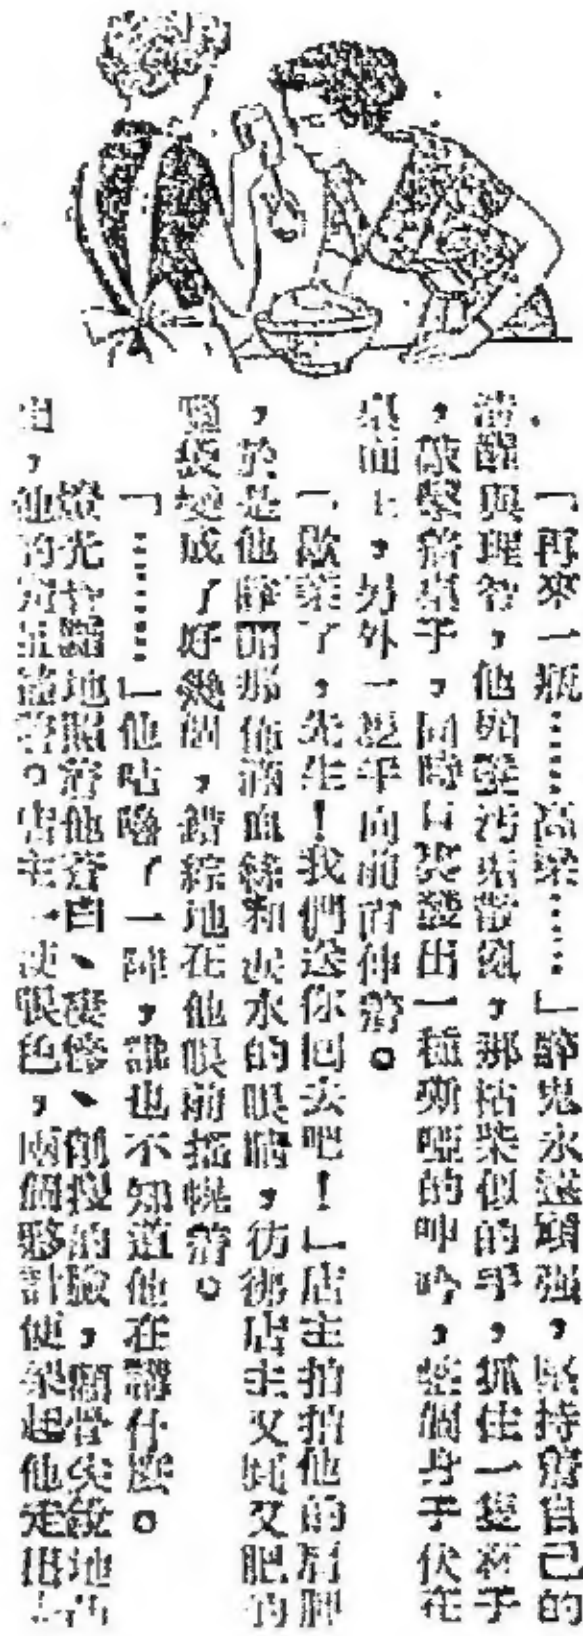 「再來一瓶……高梁……」醉鬼永遠頑强，堅持着自己的
清醒與理智，他頭髮污垢散亂，那枯柴似的手，抓住一隻杯子
，敲擊着桌子，同時口裏發出一種嘶啞的呻吟，整個身子伏在
桌面上，另外一隻手向前直伸着。
「歇業了，先生！我們送你回去吧！」店主拍拍他的肩胛
，於是他睜開那佈滿血絲和淚水的眼睛，彷彿店主又矮又肥的
變成了好幾個，錯綜地在他眼前搖幌着。
「……」他咕嚕了一陣，誰也不知道他在講什麼。
燈光地照着他蒼白、凄慘、削瘦的臉，顴骨尖銳地凸
出，他的着。店主一使眼色，兩個夥計便架起他走出